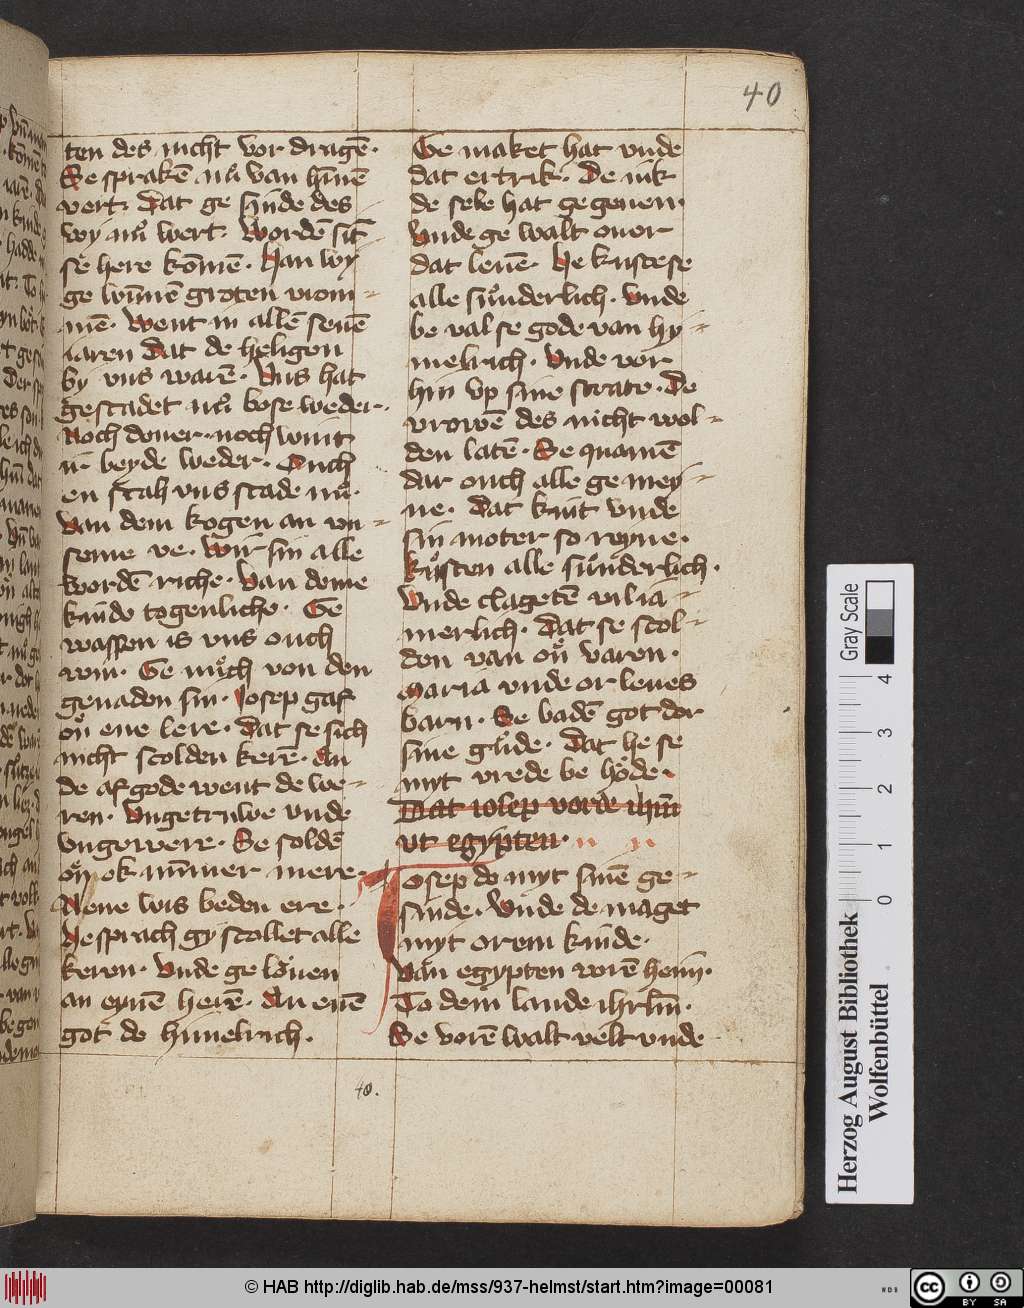 40
ten des nicht vor dragē·
Se sprakē nu̇ van hīnē
vert· Dat ge sinde des
wy nu̇ wert· Wordē sit
se here kōmē· Han wy
ge wn̄nē groten vrom-
mē· Went in allē seuē
iaren Dat de heligen
by vns warē· Vns hat
gescadet nu̇ bose weder·
Noch doner· noch wint
beyde weder· Ouch
en scah vns scade nu̇·
Van dem kogen an vn-
seme ve· Wir sin alle
wordē riche· Van deme
kinde togenliche· Ge
wassen is vns ouch
win· Ge mu̇ch von den
genaden sin· Iosep gaf
ou̇ ene lere· Dat se sich
nicht scolden kerē· An
de afgode went de we-
ren· Vngetruwe vnde
vngewere· Se soldē
ou̇ ok nūmer mere·
Nene wis beden ere·
He sprach gy scollet alle
keren· Vnde ge lo̊uen
an eynē herē· An enē
got de himelrich·
Ge maket hat vnde
dat ertrik· De nik
de sele hat gegeuen·
Vnde ge walt ouer
dat leuē· He kuste se
alle su̇nderlich· Vnde
be val se gode van hy-
melrich· Vnde vor
hin vp sine strate· De
vrowē des nicht wol-
den latē· Se quamē
dar ouch alle ge mey-
ne· Dat kint vnde
sin moter so reyne·
Ku̇sten alle su̇nderlich·
Vnde clagetē vil ia-
merlich· Dat se scol-
den van ou̇ varen·
Maria vnde or leues
barn· Se badē got dor
sine gu̇de· Dat he se
myt vrede be ho̊de·
Dat iosep vorde ihm̄
vt egypten·
Iosep do myt sinē ge-
sinde· Vnde de maget
myt orem kinde·
Van egypten vorē heim·
To dem lande ihrlm̄·
Se vorē walt velt vnde
40.
Gray Scale
4
3
2
1
0
Herzog August Bibliothek
Wolfenbüttel
© HAB http://diglib.hab.de/mss/937-helmst/start.htm?image=00081
WDB
cc
BY SA